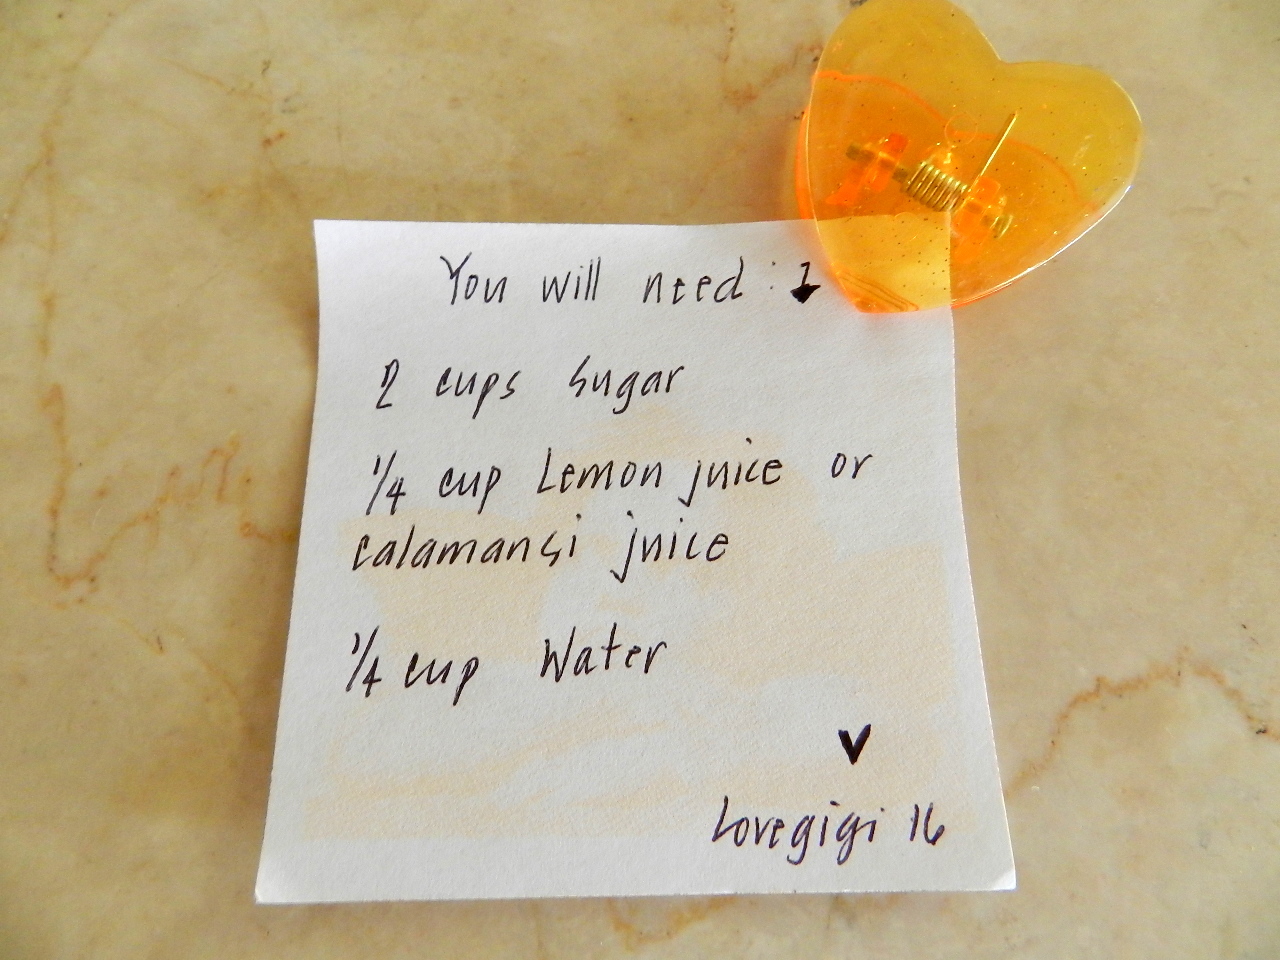 You will need :
2 cups sugar
1/4 cup Lemon juice or
calamansi juice
1/4 cup Water
Lovegigi 16